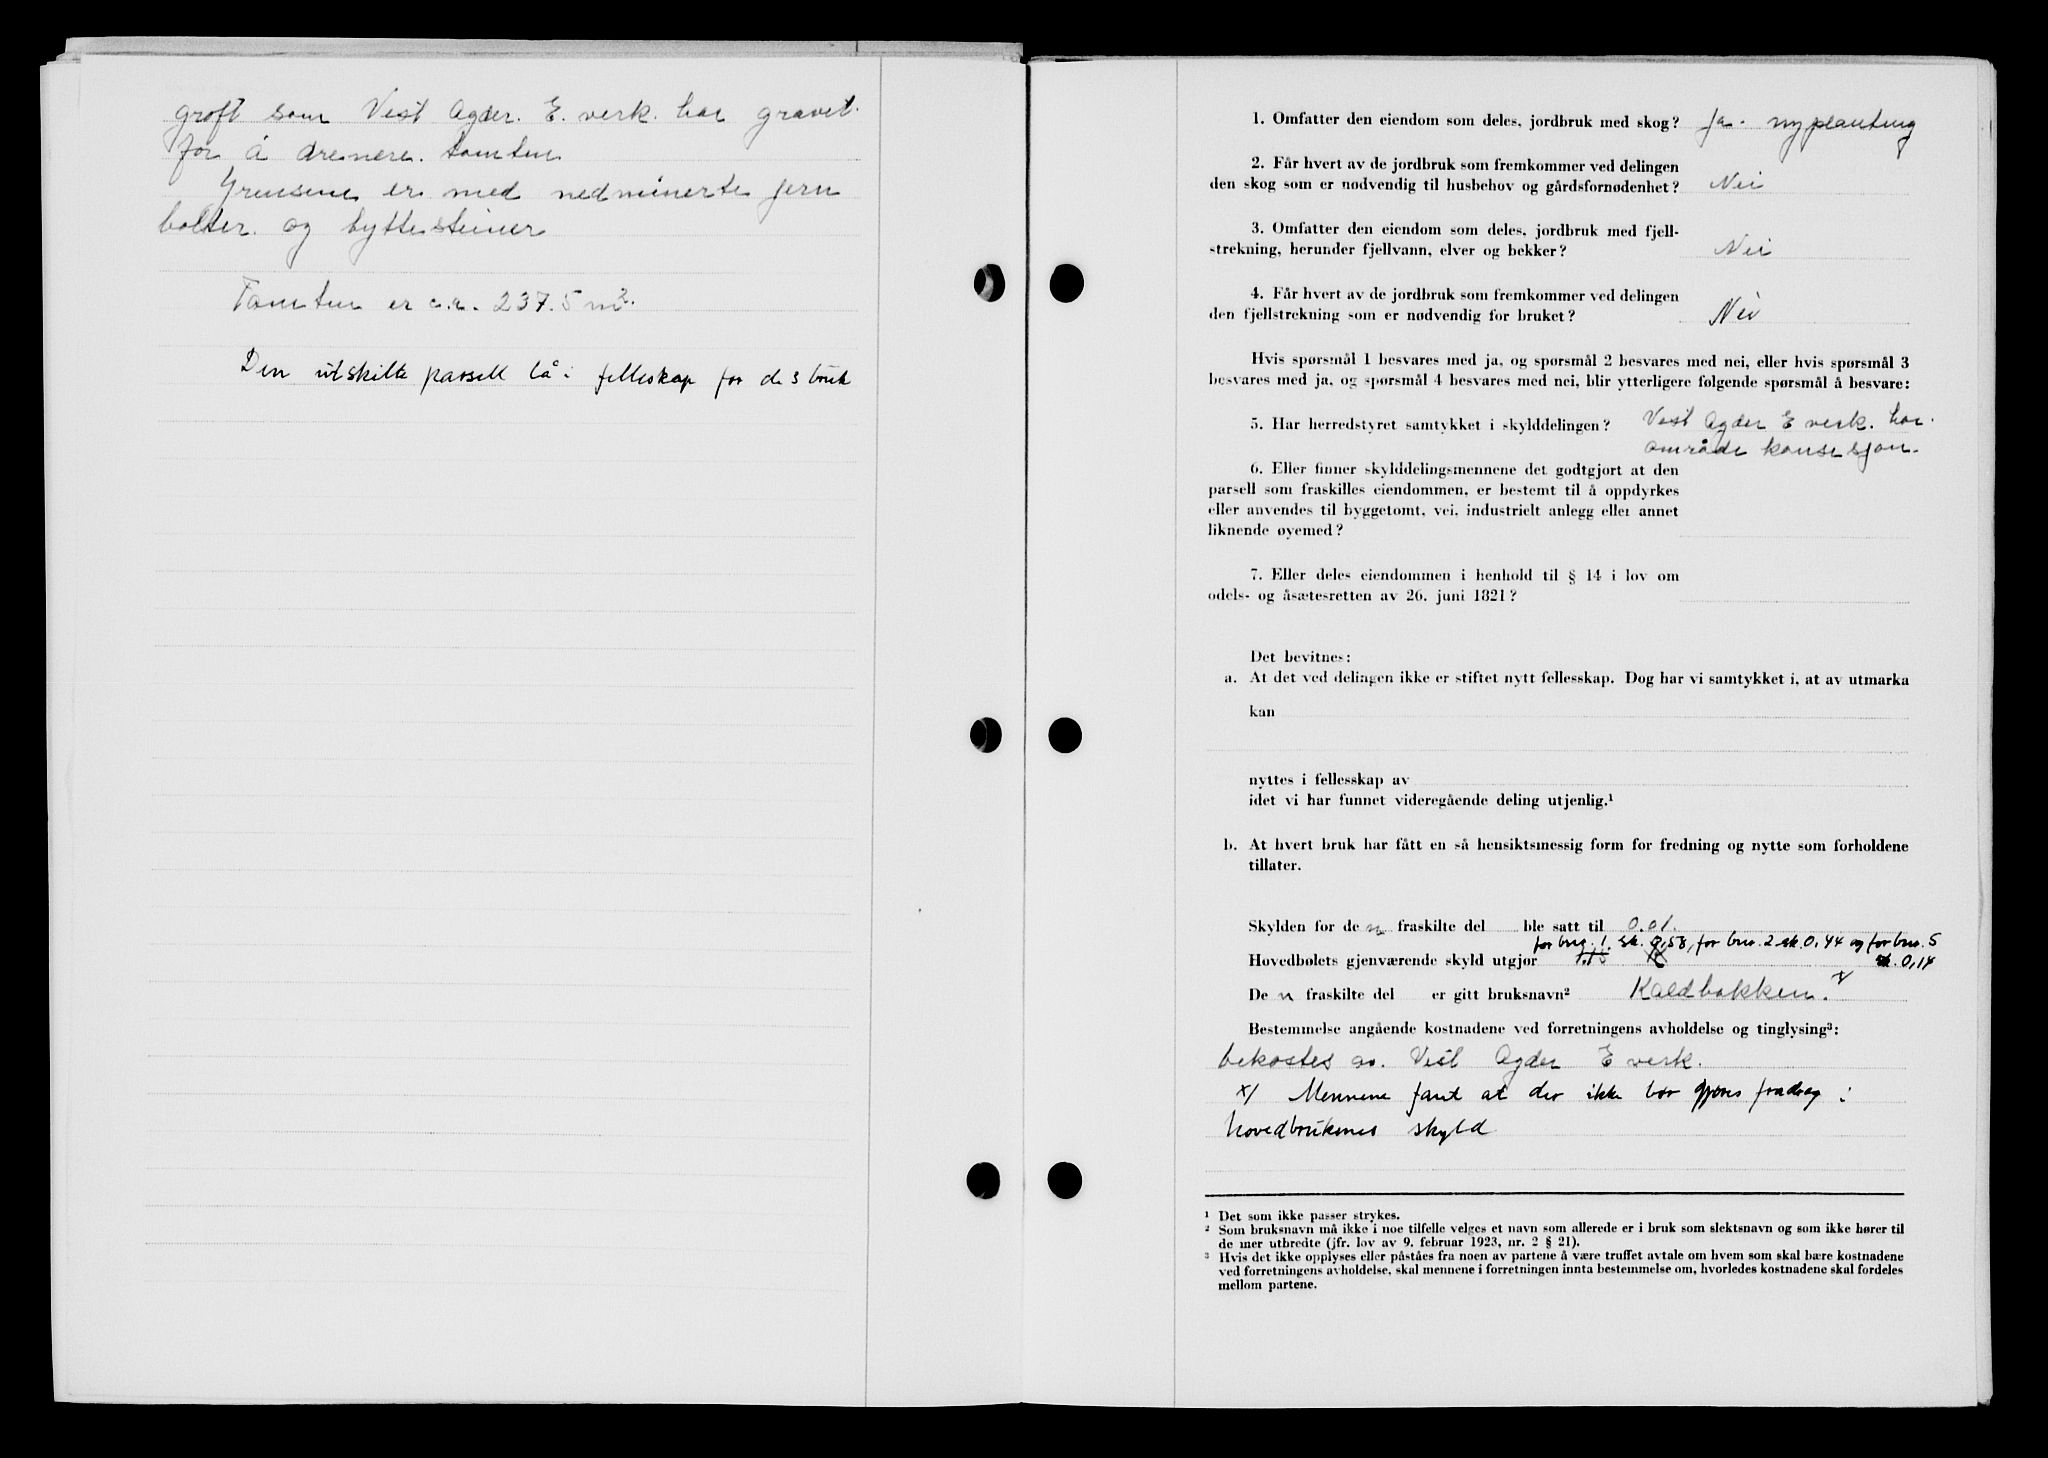 grøft som Vest Agder. E. verk. har gravet.
for å drenere. tomten
Grensene er med nedminerte jern
bolter. og byttesteiner
Tomten er c.a. 237.5 m².
Den utskilte parsell lå i felleskap for de 3 bruk
1. Omfatter den eiendom som deles, jordbruk med skog? Ja. nyplanting
2. Får hvert av de jordbruk som fremkommer ved delingen
den skog som er nødvendig til husbehov og gårdsfornødenhet? Nei
3. Omfatter den eiendom som deles, jordbruk med fjell-
strekning, herunder fjellvann, elver og bekker? Nei
4. Får hvert av de jordbruk som fremkommer ved delingen
den fjellstrekning som er nødvendig for bruket? Nei
Hvis spørsmål 1 besvares med ja, og spørsmål 2 besvares med nei, eller hvis spørsmål 3
besvares med ja, og spørsmål 4 besvares med nei, blir ytterligere følgende spørsmål å besvare:
5. Har herredstyret samtykket i skylddelingen? Vest Agder E verk. har.
område konsesjon.
6. Eller finner skylddelingsmennene det godtgjort at den
parsell som fraskilles eiendommen, er bestemt til å oppdyrkes
eller anvendes til byggetomt, vei, industrielt anlegg eller annet
liknende øyemed?
7. Eller deles eiendommen i henhold til § 14 i lov om
odels- og åsætesretten av 26. juni 1821?
Det bevitnes:
a. At det ved delingen ikke er stiftet nytt fellesskap. Dog har vi samtykket i, at av utmarka
kan
nyttes i fellesskap av
idet vi har funnet videregående deling utjenlig.¹
b. At hvert bruk har fått en så hensiktsmessig form for fredning og nytte som forholdene
tillater.
Skylden for den fraskilte del ble satt til 0.01.
for bnr. 1. sk. 0,58, for bnr. 2 sk. 0,44 og for bnr. 5
Hovedbølets gjenværende skyld utgjør sk. 0,14
Den fraskilte del er gitt bruksnavn² Kaldbakken. x/
Bestemmelse angående kostnadene ved forretningens avholdelse og tinglysing³:
bekostes av. Vest Agder E verk.
x/ Mennene fant at der ikke bør gjøres fradrag i
hovedbrukenes skyld
¹ Det som ikke passer strykes.
² Som bruksnavn må ikke i noe tilfelle velges et navn som allerede er i bruk som slektsnavn og som ikke hører til
de mer utbredte (jfr. lov av 9. februar 1923, nr. 2 § 21).
³ Hvis det ikke opplyses eller påståes fra noen av partene å være truffet avtale om hvem som skal bære kostnadene
ved forretningens avholdelse, skal mennene i forretningen innta bestemmelse om, hvorledes kostnadene skal fordeles
mellom partene.